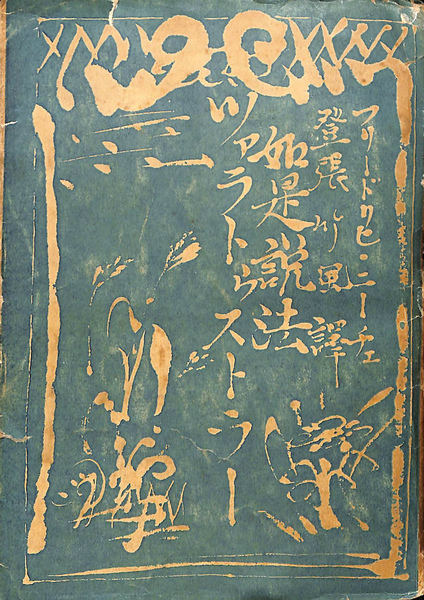 フリードリヒ・ニーチェ
登張竹風譯
如是説法
ツァラトゥストラー